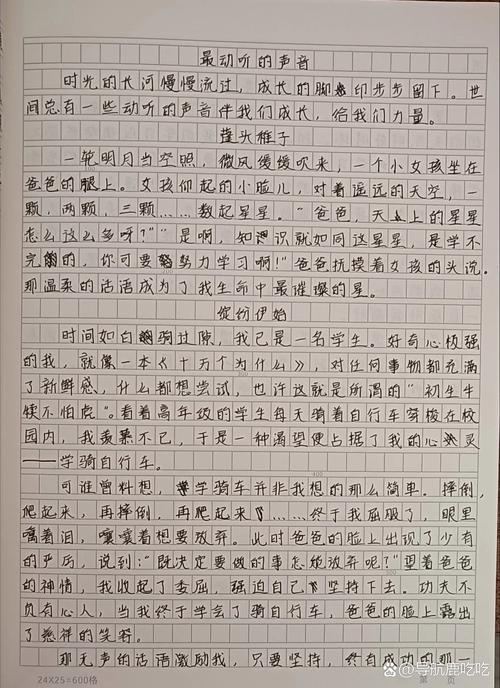 最动听的声音
时光的长河慢慢流过，成长的脚印步步留下。世
间总有一些动听的声音伴我们成长，给我们力量。
蓬头稚子
一轮明月当空照，微风缓缓吹来，一个小女孩坐在
爸爸的腿上。女孩仰起的小脸儿，对着遥远的天空，一
颗，两颗，三颗……数起星星。“爸爸，天上的星星
怎么这么多呀？”“是啊，知识就如同这星星，是学不
完的，你可要努力学习啊！”爸爸抚摸着女孩的头说。
那温柔的话语成为了我生命中最璀璨的星。
缤纷伊始
时间如白驹过隙，我已是一名学生。好奇心极强
的我，就像一本《十万个为什么》，对任何事物都充满
了新鲜感，什么都想尝试，也许这就是所谓的“初生牛
犊不怕虎”。看着高年级的学生每天骑着自行车穿梭在校
园内，我羡慕不已，于是一种渴望便占据了我的心灵
——学骑自行车。
400
可谁曾料想，学骑车并非我想的那么简单。摔倒，
爬起来，再摔倒，再爬起来……终于我屈服了，眼里
噙着泪，嚷嚷着想要放弃。此时爸爸的脸上出现了少有
的严厉，说到：“既决定要做的事怎能放弃呢？”望着爸爸
的神情，我收起了委屈，强迫自己坚持下去。功夫不
负有心人，当我终于学会了骑自行车，爸爸的脸上露出
了慈祥的笑容。
那无声的话语激励我，只要坚持，终有成功的那一
24X25=600格
第 页
@导航鹿吃吃